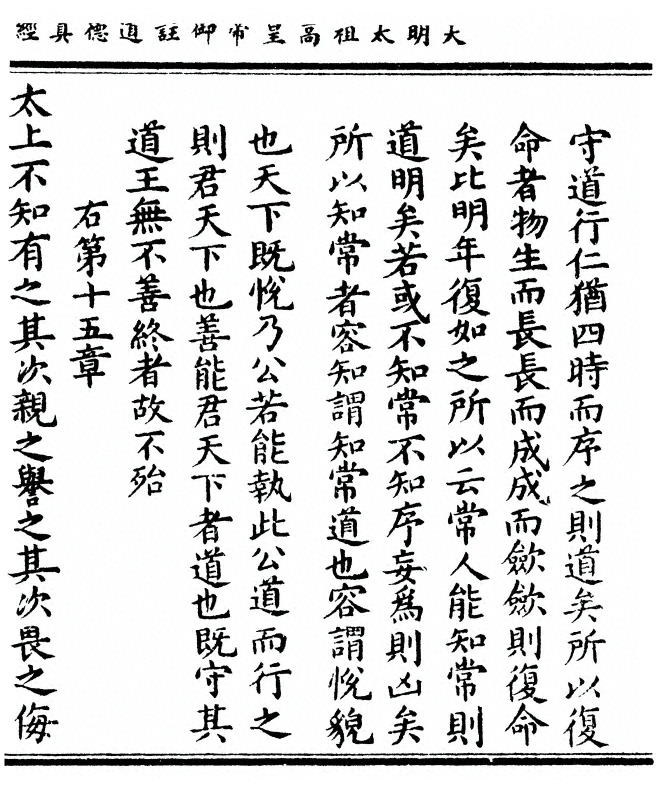 大明太祖高皇帝御註道德真經
守道行仁猶四時而序之則道矣所以復
命者物生而長長而成成而歛歛則復命
矣比明年復如之所以云常人能知常則
道明矣若或不知常不知序妄爲則凶矣
所以知常者容知謂知常道也容謂悅貌
也天下既悅乃公若能執此公道而行之
則君天下也善能君天下者道也既守其
道王無不善終者故不殆
右第十五章
太上不知有之其次親之譽之其次畏之侮